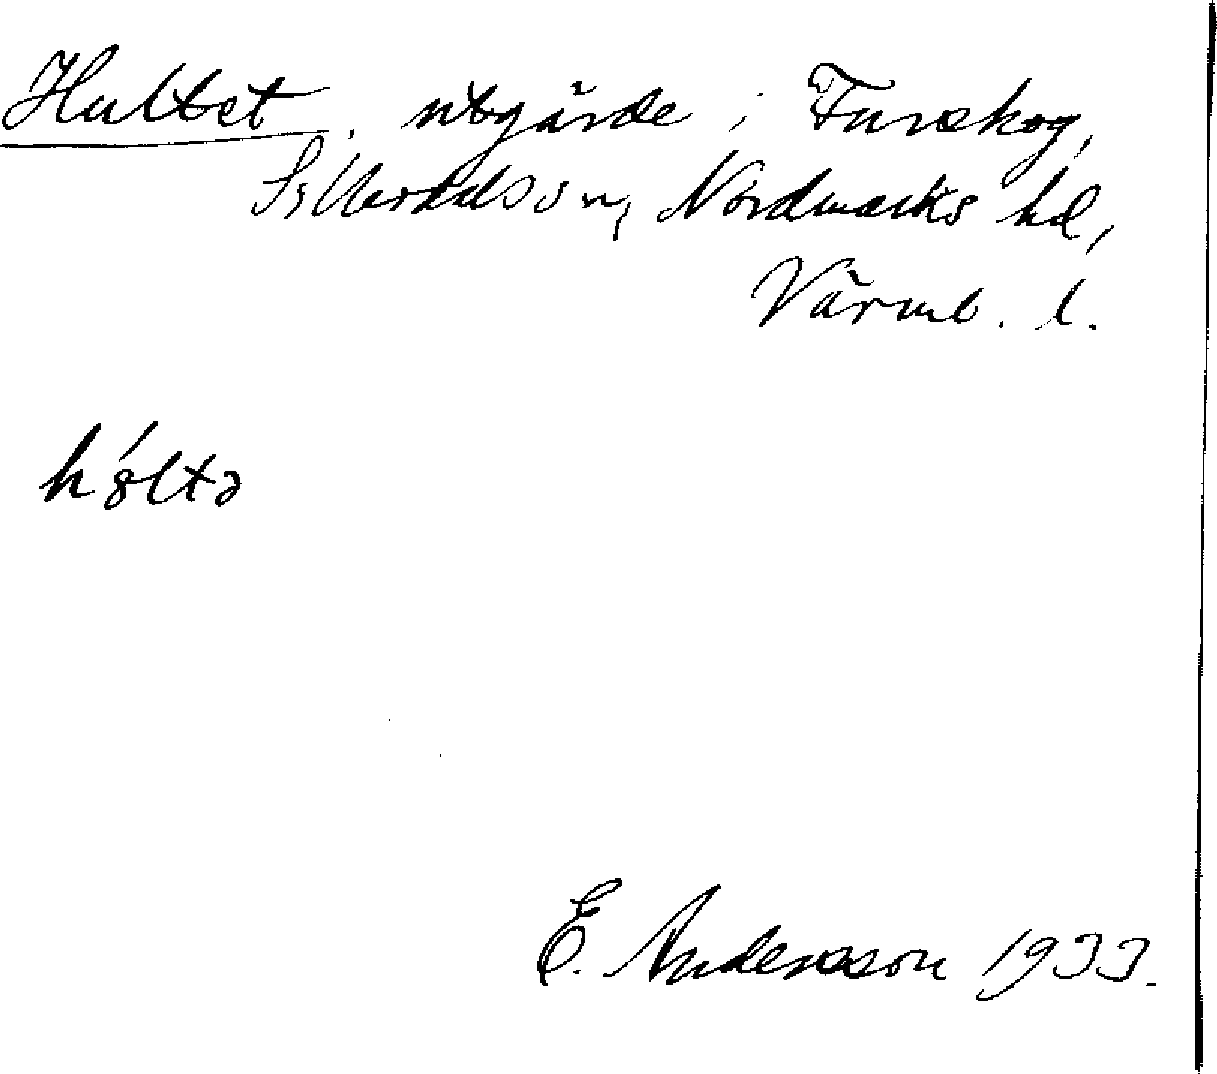 Hultet, utgärde i Fureskog,
Silleruds sn, Nordmarks hd,
Värml. l.
hóltə
E. Andersson 1933.